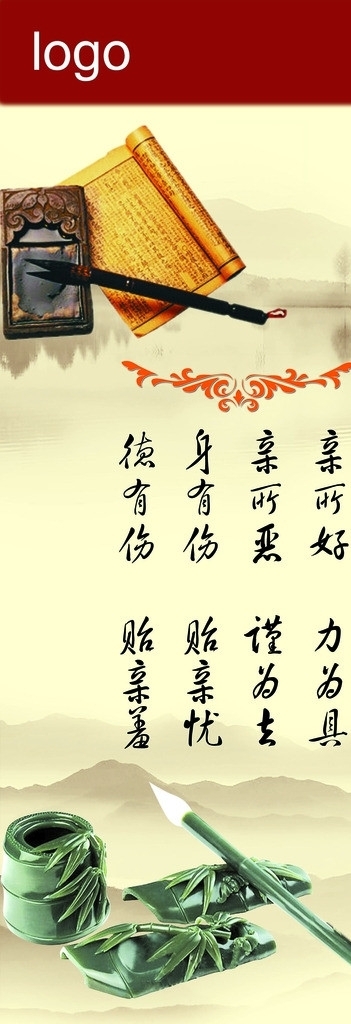 logo
亲所好
力为具
亲所恶
谨为去
身有伤
贻亲忧
德有伤
贻亲羞